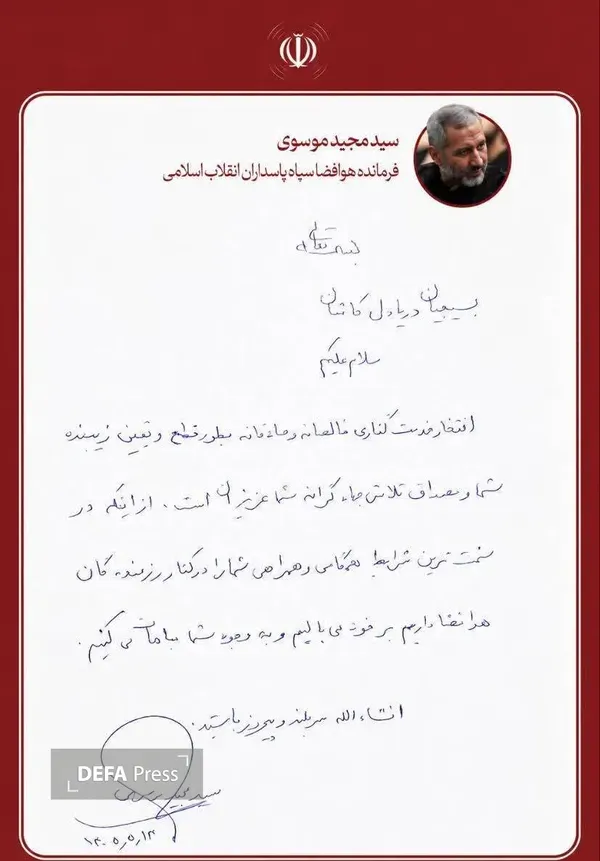 سید مجید موسوی
فرمانده هوافضا سپاه پاسداران انقلاب اسلامی
بسمه تعالی
بسیجیان دریادل کاشان
سلام علیکم
افتخار خدمت گذاری خالصانه و صادقانه بطور قطع و یقین زیبنده
شما و مصداق تلاش جهادگرانه شما عزیزان است. از اینکه در
سخت ترین شرایط همگامی و همراهی شما را در کنار رزمندگان
هوافضا داریم بر خود می بالیم و به وجود شما مباهات می کنیم.
انشاءالله سربلند و پیروز باشید.
DEFA Press
سید مجید موسوی
۱۴۰۵٫۵٫۱۳